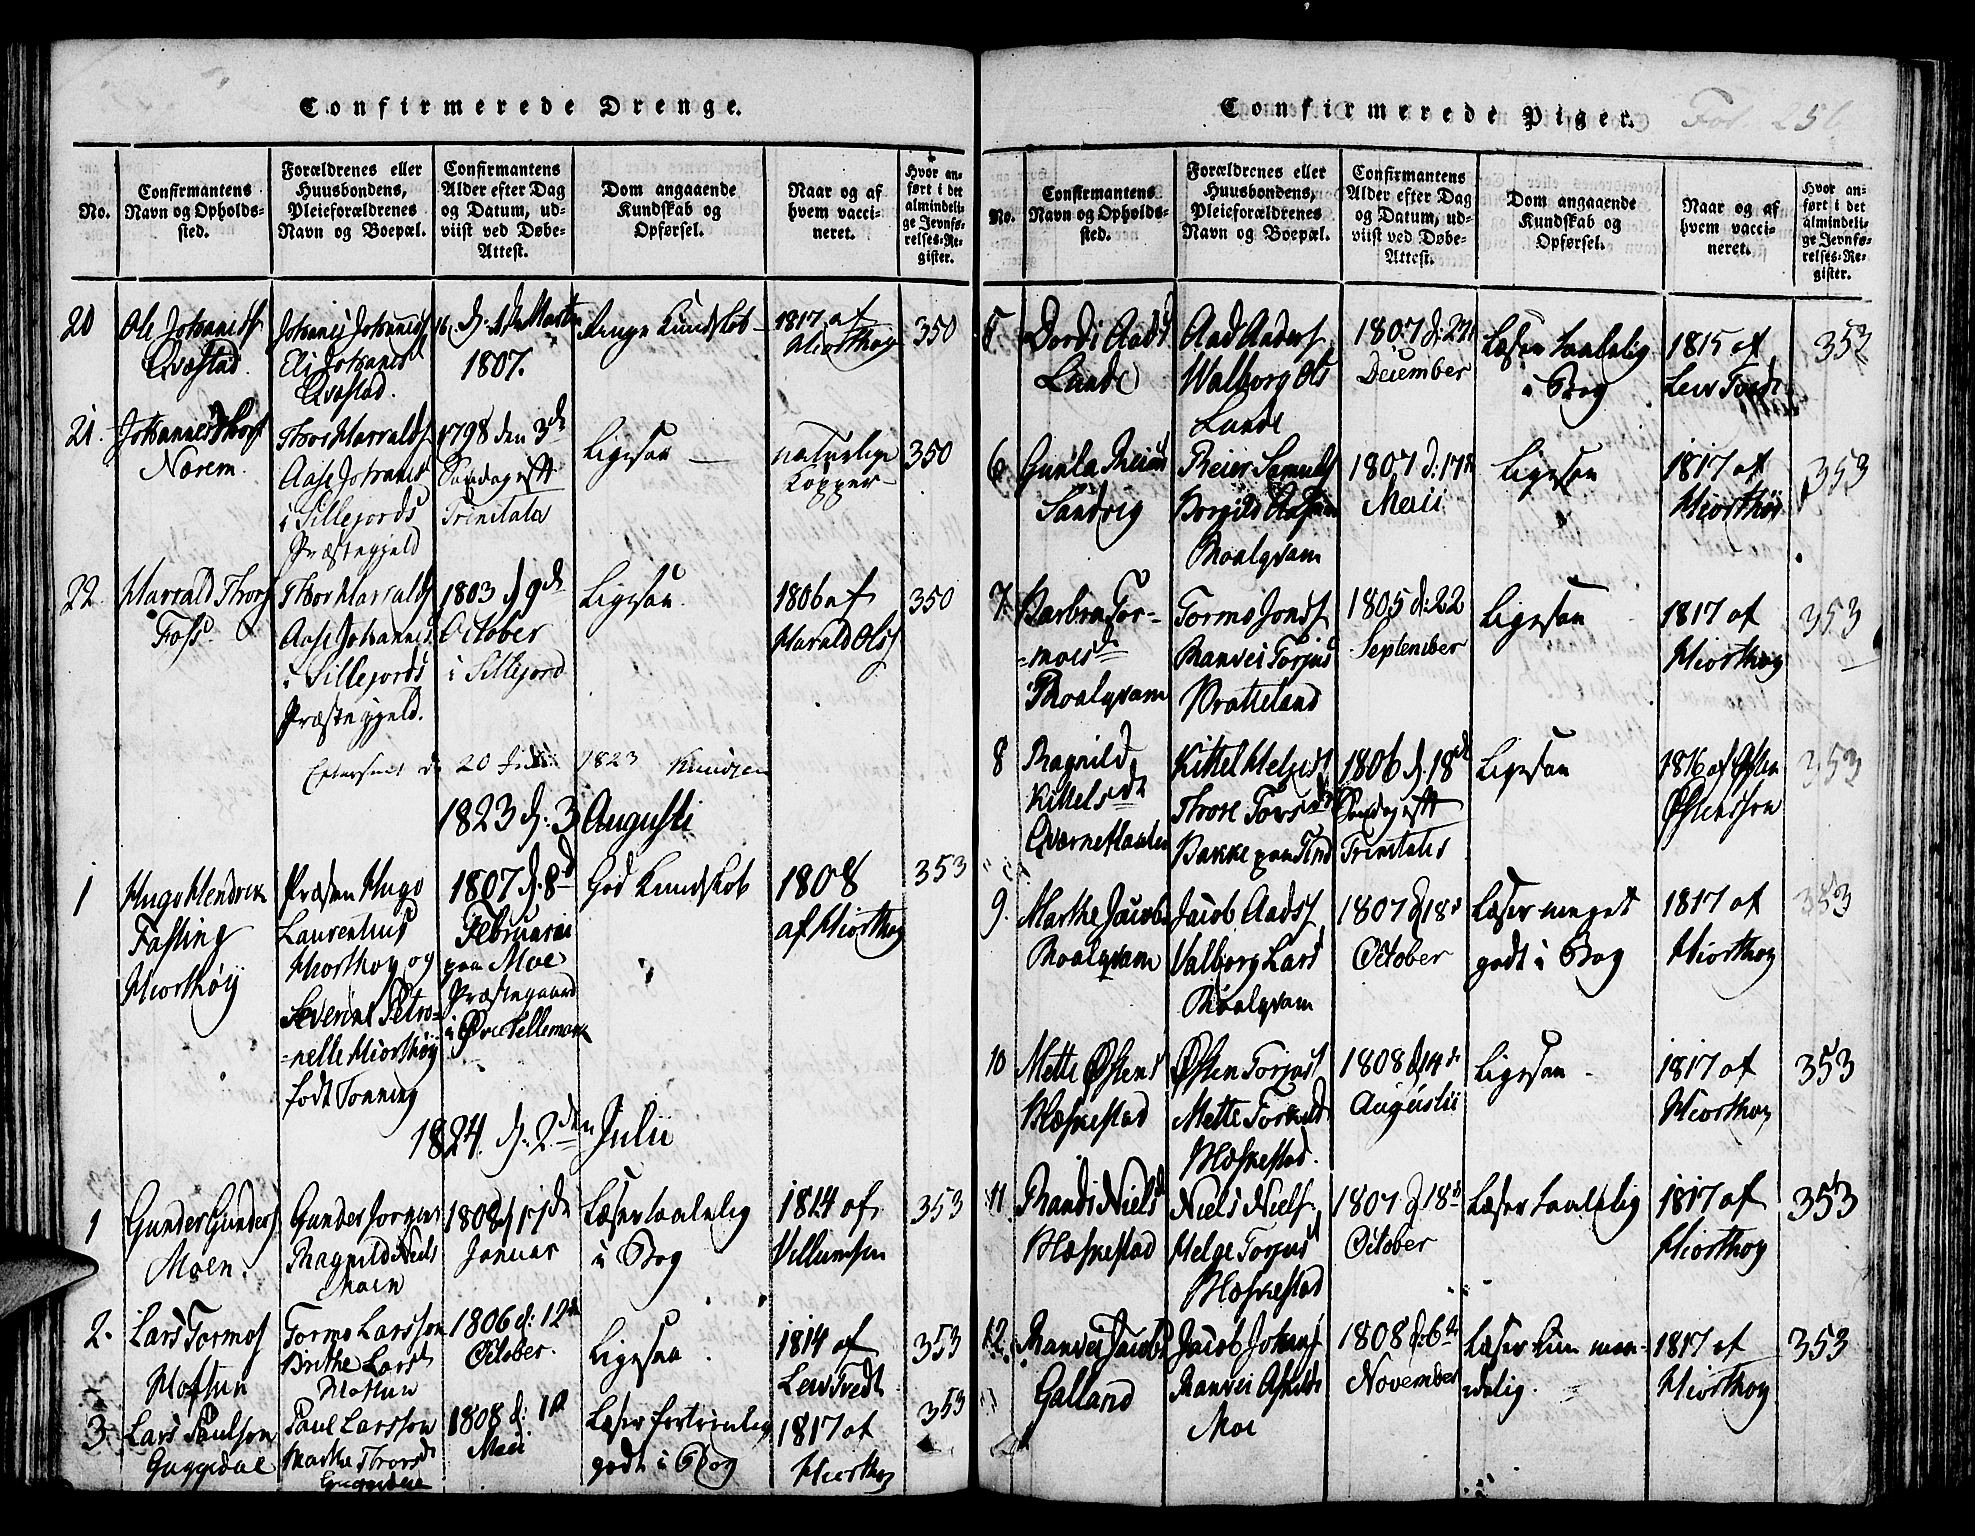 Confirmerede Drenge.
No.
Confirmantens
Navn og Opholds-
sted.
Forældrenes eller
Huusbondens,
Pleieforældrenes
Navn og Boepæl.
Confirmantens
Alder efter Dag
og Datum, ud-
viist ved Døbe-
Attest.
Dom angaaende
Kundskab og
Opførsel.
Naar og af
hvem vacci-
neret.
Hvor an-
ført i det
almindeli-
ge Jevnfø-
relses-Re-
gister.
20
Ole Johannes
Qvæstad.
Johannes Johannes
Eli Johannesd
Qvæstad.
16
1807.
Kundskab
1817 af
Miorthoy
350
21.
Johannes Thors
Nærem.
Thor Harralds
Aase Johannesd
i Sillejords
Præstegjeld
1798 den 3de
Søndag eft
Trinitatis
Ligesaa
naturlige
Kopper
350
22
Harrald Thors
Foss.
Thor Harralds
Aase Johannesd
i Sillejords
Præstegjeld.
1803 d 9de
October
i Sillejord
Ligesaa.
1806 af
Harald Ols
350
20 1823 Knudsen
1823 d: 3 Augusti
1
Hugo Hendrik
Fasting
Hiorthøy
Præsten Hugo
Laurentius
Hiorthoy og
Severine Petro-
nelle Hiorthøy
født Tonning
1807 d. 8d
Februari
paa Moe
Præstegaard
i Øvre Tellemark
God Kundskab
1808
af Hiorthoy
353
1824. d. 2den Julii
1
Gunder Gunders
Moen.
Gunder Jorgens
Ragnild Niels
Moen
1808
Januar
Læser taalelig
i Bog
1814 af
Villumsen
353
2.
Lars Tormos
Moftun
Tormo Larsson
Brithe Larsd
Moftun
1806 d: 12te
October.
Ligesaa.
1814 af
Leiv Tvedt
353
3.
Lars Paulson
Guggedal
Paul Larsson
Marthe Thorsd
1808 d: 1
Maii
Læser fortrinlig
godt i Bog
1817 af
Hiorthoy
353
Confirmerede Piger.
Fol. 256
No.
Confirmantens
Navn og Opholds-
sted.
Forældrenes eller
Huusbondens,
Pleieforældrenes
Navn og Boepæl.
Confirmantens
Alder efter Dag
og Datum, ud-
viist ved Døbe-
Attest.
Dom angaaende
Kundskab og
Opførsel.
Naar og af
hvem vacci-
neret.
Hvor an-
ført i det
almindeli-
ge Jevnfø-
relses-Re-
gister.
5
Dordi Aads
Lunde
Aad Anders
Walborg Ols
Lunde
1807 d: 27
December
Læser taalelig
i Bog
1815 af
Leiv Tvedt
353
6
Gunla
Sandvig
Reier Samuels
Roalqvam
1807 d: 17de
Maii
Ligesaa
1817 af
Hiorthøi
353
7.
Barbra Tor-
-mosd
Roalqvam
Tormo Jons
Ranvei Torjus
Bratteland
1805 d: 22
September
Ligesaa
1817 af
Hiorthoy
353
8
Ragnild
Kittelsd
Qværnestaaden
Kittel Helges
Thore Torsd
Bakke paa Tind
1806 d. 18de
Søndag eft
Trinitatis
Ligesaa
1816 af Østen
Østensson
353
9.
Marthe Jacobs
Roalqvam
Jacob Aads
Valborg Lars
Roalqvam
1807 d 18d
October
Læser meget
godt i Bog
1817 af
Hiorthoy
353
10
Mette Østens
Hæskestad
Østen Torjus
Mette Torkels
Hæskestad.
1808 d 14de
Augustii
Ligesaa
1817 af
Hiorthoy
353
11.
Randi Niels
Hæskestad
Niels Niels
Helge Torjus
Hæskestad
1807 d 18d
October
Læser taalelig
1817 af
Hiorthoy
353
12.
Ranvei Jacobs
Galland
Jacob Johans
Ranvei
Moe
1808 d: 6te
November
Læser kun maa-
delig.
1817 af
Hiorthoy
353